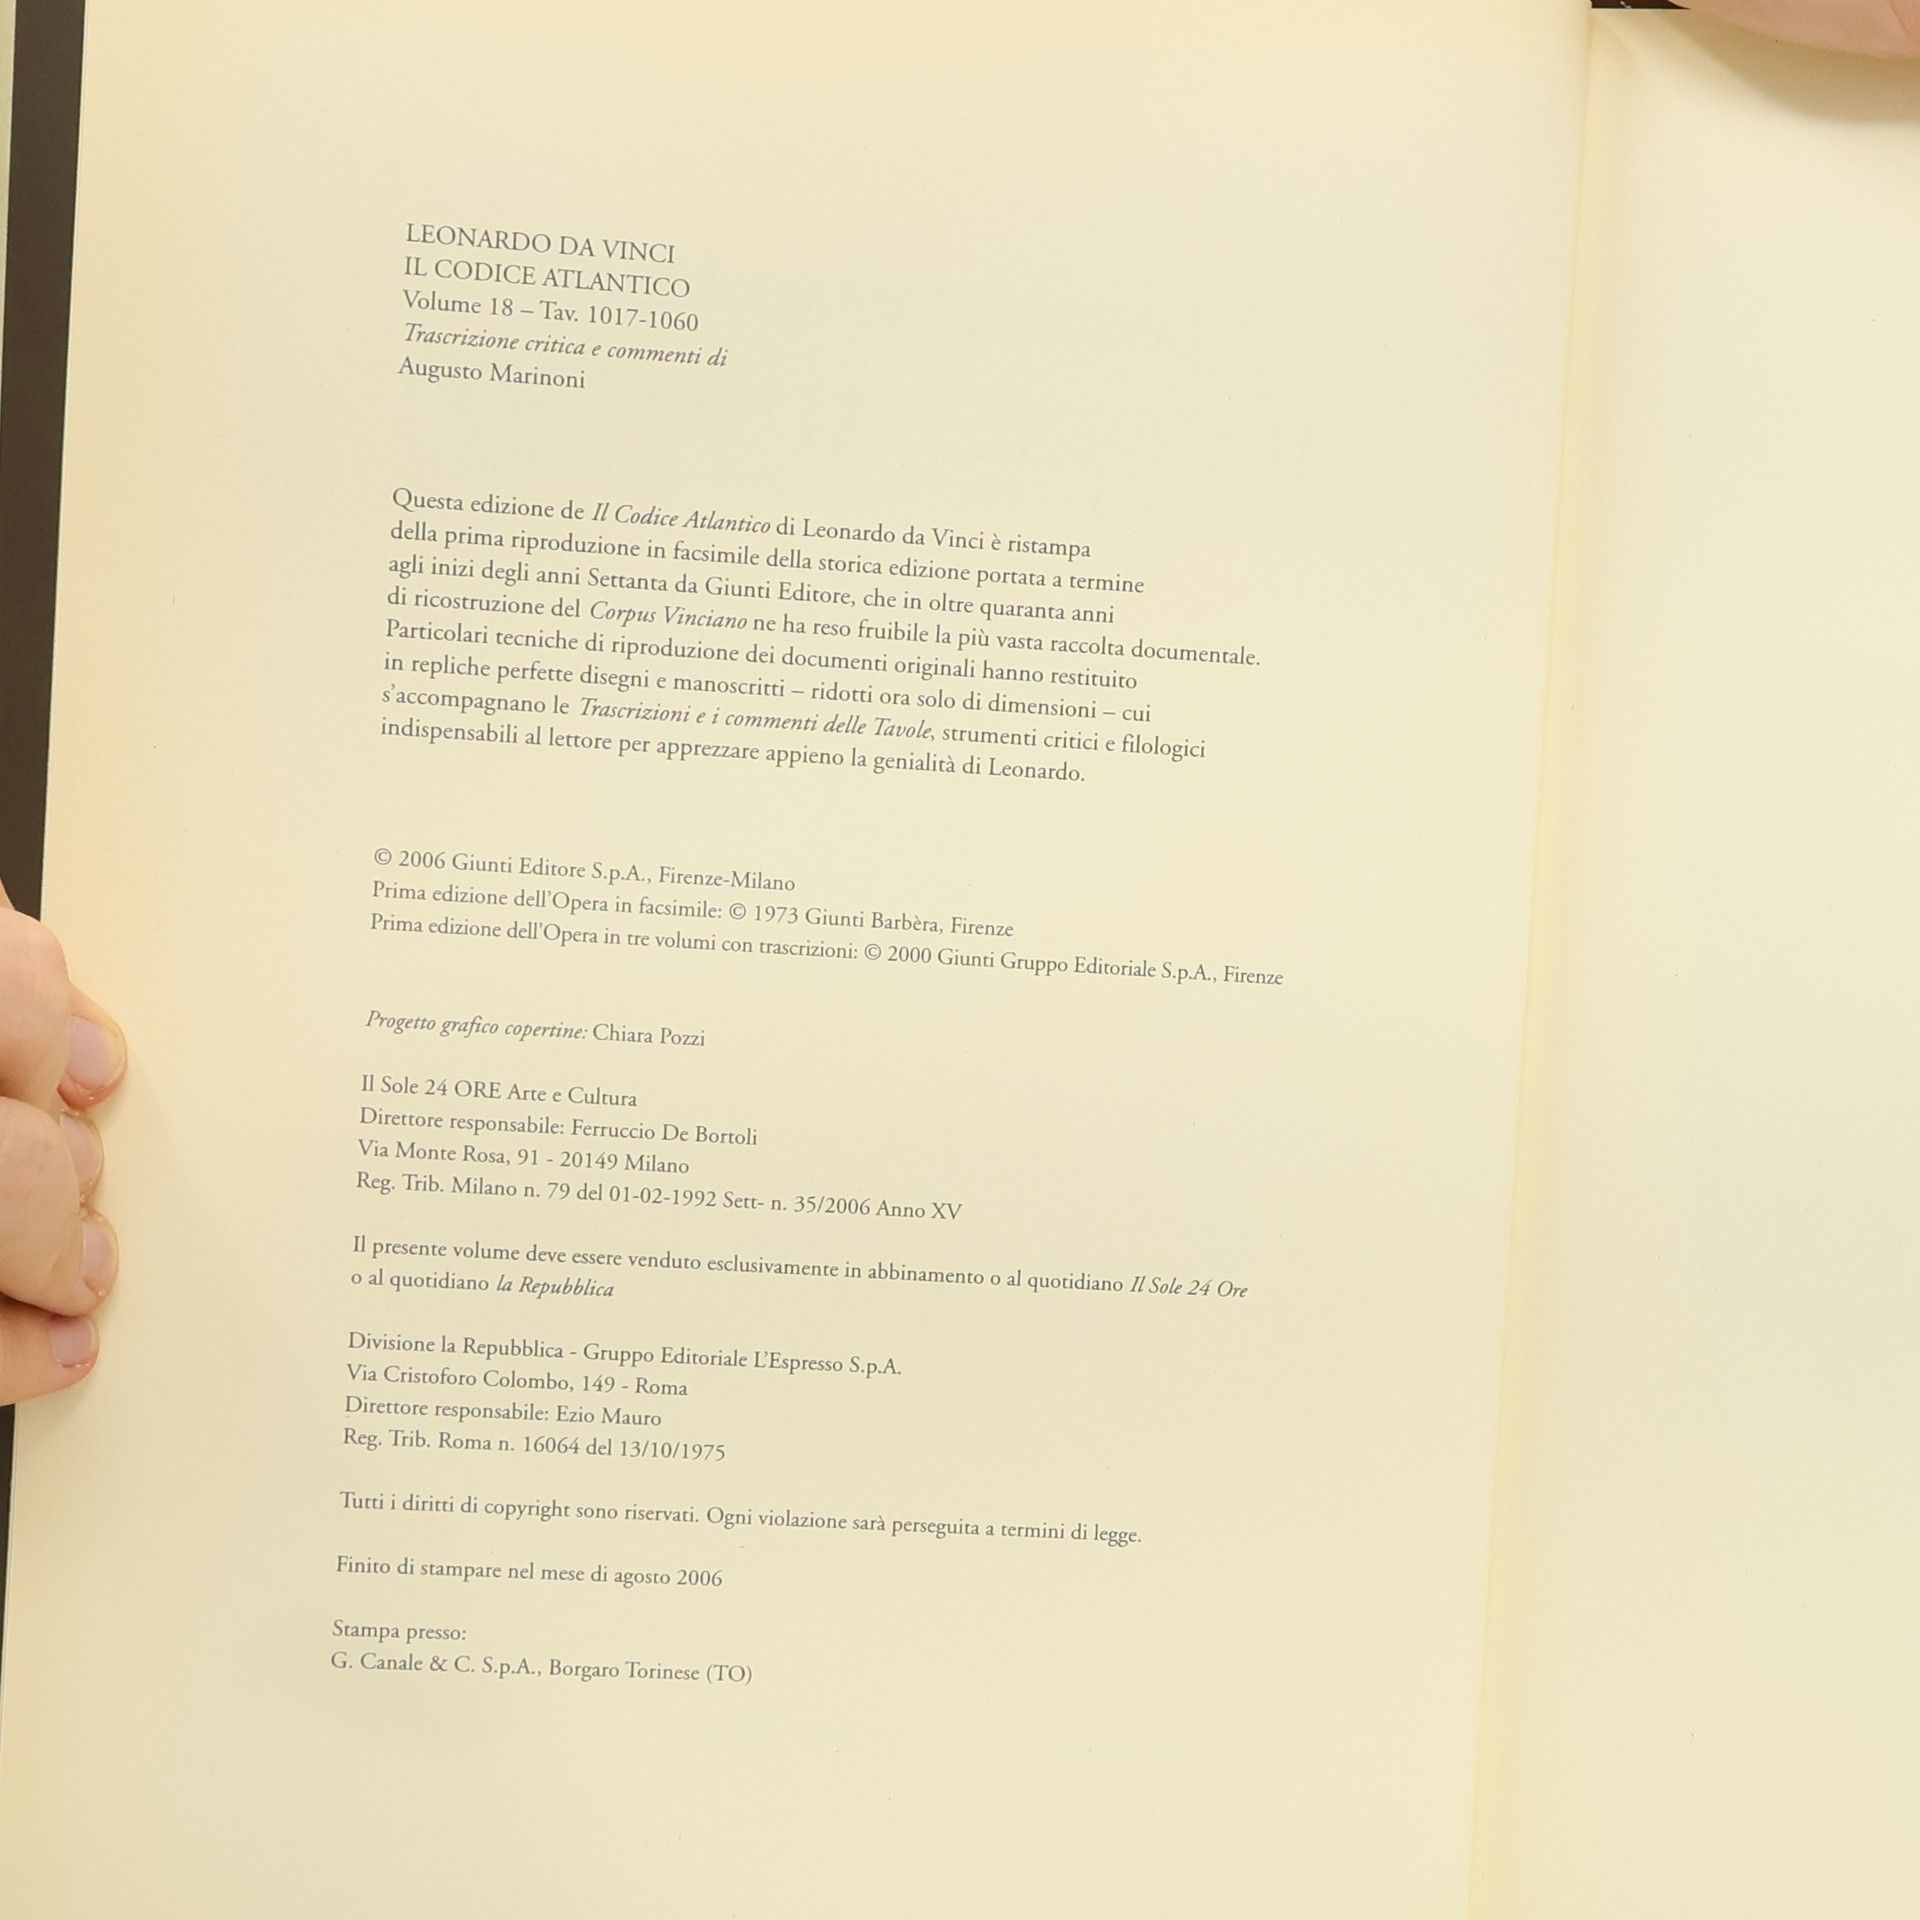 LEONARDO DA VINCI
IL CODICE ATLANTICO
Volume 18 – Tav. 1017-1060
Trascrizione critica e commenti di
Augusto Marinoni
Questa edizione de Il Codice Atlantico di Leonardo da Vinci è ristampa
della prima riproduzione in facsimile della storica edizione portata a termine
agli inizi degli anni Settanta da Giunti Editore, che in oltre quaranta anni
di ricostruzione del Corpus Vinciano ne ha reso fruibile la più vasta raccolta documentale.
Particolari tecniche di riproduzione dei documenti originali hanno restituito
in repliche perfette disegni e manoscritti – ridotti ora solo di dimensioni – cui
s'accompagnano le Trascrizioni e i commenti delle Tavole, strumenti critici e filologici
indispensabili al lettore per apprezzare appieno la genialità di Leonardo.
© 2006 Giunti Editore S.p.A., Firenze-Milano
Prima edizione dell'Opera in facsimile: © 1973 Giunti Barbèra, Firenze
Prima edizione dell'Opera in tre volumi con trascrizioni: © 2000 Giunti Gruppo Editoriale S.p.A., Firenze
Progetto grafico copertine: Chiara Pozzi
Il Sole 24 ORE Arte e Cultura
Direttore responsabile: Ferruccio De Bortoli
Via Monte Rosa, 91 - 20149 Milano
Reg. Trib. Milano n. 79 del 01-02-1992 Sett- n. 35/2006 Anno XV
Il presente volume deve essere venduto esclusivamente in abbinamento o al quotidiano Il Sole 24 Ore
o al quotidiano la Repubblica
Divisione la Repubblica - Gruppo Editoriale L'Espresso S.p.A.
Via Cristoforo Colombo, 149 - Roma
Direttore responsabile: Ezio Mauro
Reg. Trib. Roma n. 16064 del 13/10/1975
Tutti i diritti di copyright sono riservati. Ogni violazione sarà perseguita a termini di legge.
Finito di stampare nel mese di agosto 2006
Stampa presso:
G. Canale & C. S.p.A., Borgaro Torinese (TO)